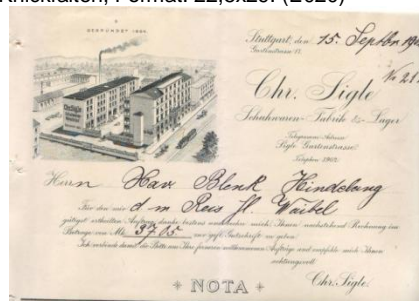 Knickfalten, Format: 22,5x29. (2020)
GEGRÜNDET 1864.
Stuttgart, den 15. Septbr 190
Gartenstrasse 17.
Chr. Sigle
Schuhwaren-Fabrik & Lager
Telegramm-Adresse:
Sigle Gartenstrasse.
Telephon 1902.
Herrn Xav Blenk Hindelang
Für den mir d m Reis Hl. Waibel
gütigst ertheilten Auftrag dankt bestens, einhändige mich Ihnen nachstehend Rechnung im
Betrage von Mk. 37.05. um gefl. Gutschrift zu geben.
Ich verbinde damit die Bitte um Ihre ferneren willkommenen Aufträge und empfehle mich Ihnen
achtungsvoll
Chr. Sigle.
NOTA